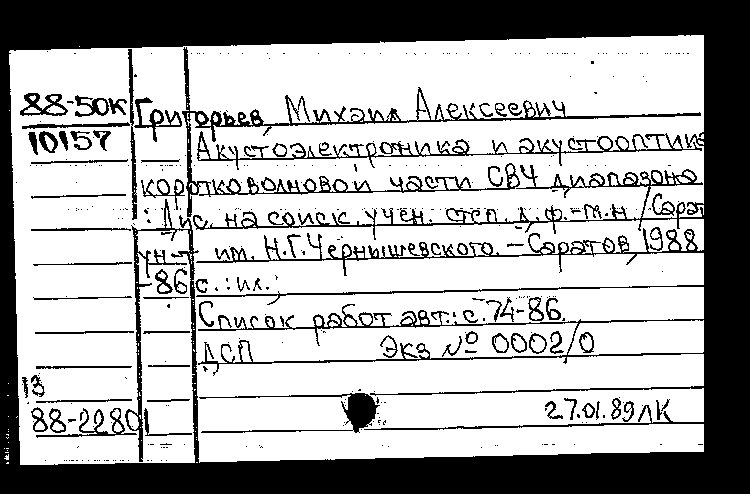 88-50К Григорьев, Михаил Алексеевич
10157 Акустоэлектроника и акустооптика
коротковолновой части СВЧ диапазона
: Дис. на соиск. учен. степ. д. ф.-м.н. / Сарат
ун-т им. Н.Г. Чернышевского. – Саратов, 1988
-86 с. : ил. ;
Список работ авт.: с. 74-86.
ДСП Экз № 0002/0
13
88-22801 27.01.89 ЛК